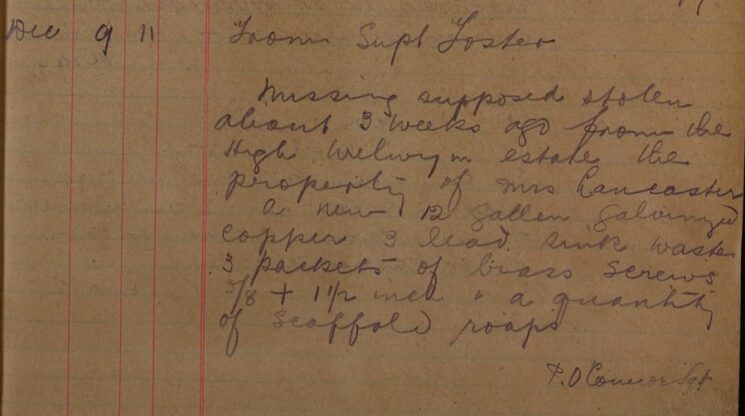 Dec 9 11 From Supt Foster
Missing supposed stolen
about 3 weeks ago from the
High Welwyn estate the
property of Mrs Lancaster
a new 12 gallon galvinized
copper 3 lead sink wastes
3 packets of brass screws
5/8 + 1 1/2 inch & a quantity
of scaffold roaps
P. O Connor Sgt